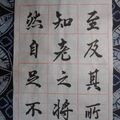 至及其所
知老之將
然自足不